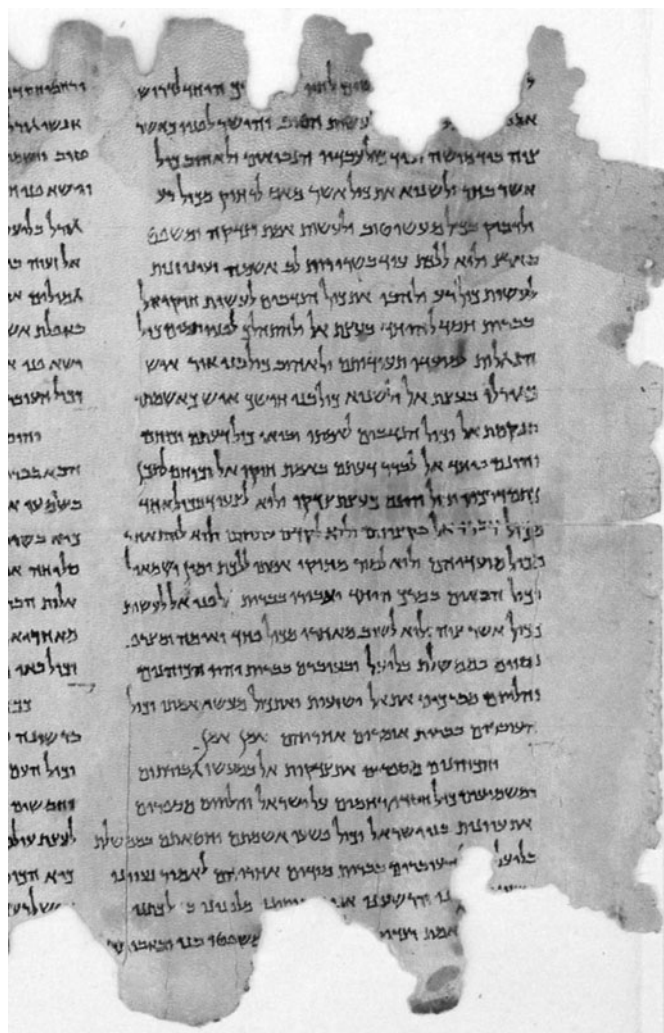 לחיו היחד לדרוש
אל לעשות הטוב והישר לפניו כאשר
צוה ביד מושה וביד כול עבדיו הנביאים ולאהוב כול
אשר בחר ולשנוא את כול אשר מאס לרחוק מכול רע
ולדבוק בכול מעשי טוב ולעשות אמת וצדקה ומשפט
בארץ ולוא ללכת עוד בשרירות לב אשמה ועיני זנות
לעשות כול רע ולהבי את כול הנדבים לעשות חוקי אל
בברית חסד להיחד בעצת אל ולהתהלך לפניו תמים כול
הנגלות למועדי תעודותם ולאהוב כול בני אור איש
כגורלו בעצת אל ולשנוא כול בני חושך איש כאשמתו
בנקמת אל וכול הנדבים לאמתו יביאו כול דעתם וכוחם
והונם ביחד אל לברר דעתם באמת חוקי אל וכוחם לתכן
כתם דרכיו וכול הונם כעצת צדקו ולוא לצעוד בכול אחד
מכול דברי אל בקציהם ולוא לקדם עתיהם ולוא להתאחר
מכול מועדיהם ולוא לסור מחוקי אמתו ללכת ימין ושמאול
וכול הבאים בסרך היחד יעבורו בברית לפני אל לעשות
ככול אשר צוה ולוא לשוב מאחרו מכול פחד ואימה ומצרף
נסוים בממשלת בליעל ובעוברם בברית יהיו הכוהנים
והלויים מברכים את אל ישועות ואת כול מעשי אמתו וכול
העוברים בברית אומרים אחריהם אמן אמן
והכוהנים מספרים את צדקות אל במעשי גבורתום
ומשמיעים כול חסדי רחמים על ישראל והלויים מספרים
את עוונות בני ישראל וכול פשעי אשמתם וחטאתם בממשלת
בליעל העוברים בברית מודים אחריהם לאמור נעוינו
הרשענו
אמת משפטו בנו
אנשי
טוב
וישא פני
גורל
אל זעוה
גמולים
באפלת
ישא פני
וכול
הבא
בשומעו
כיא
סליחה
אלות
וכול באי
ברישונה
וכול העם
וחמשים
לעצת
כיא